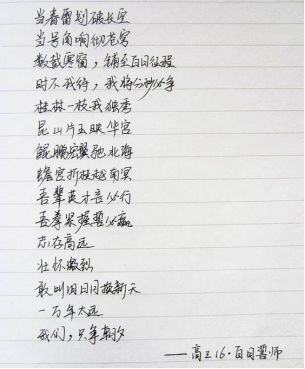 当春雷划破长空
当号角响彻苍穹
数载寒窗，铺至百日征程
时不我待，我将分秒必争
桂林一枝我独秀
昆山片玉映华宫
鲲鹏宏翼驰北海
蟾宫折桂越南冥
吾辈英才言必行
吾辈果操誓必赢
志存高远
壮怀激烈
敢叫旧日月换新天
一万年太远
我们，只争朝夕
——高三16·百日誓师